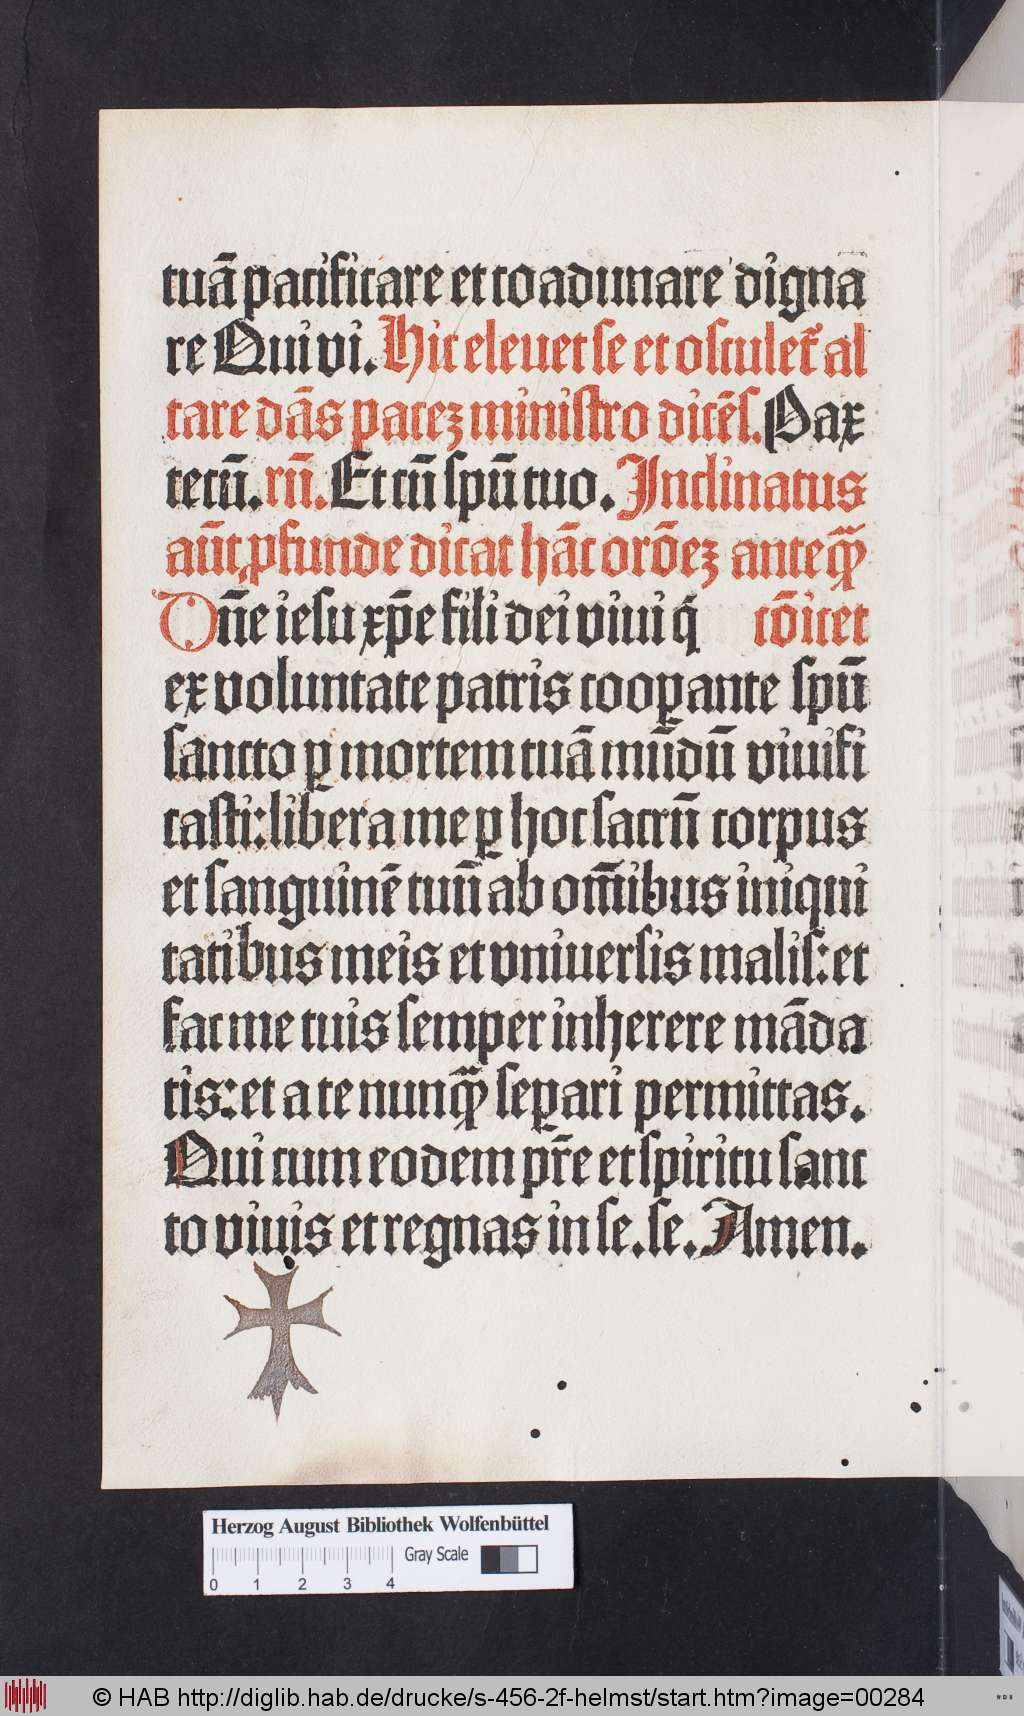 tuā pacificare et coadunare digna
re Qui vi. Hic eleuet se et osculet᷑ al
tare dās pacez ministro dicēs. Pax
tecū. rn̄. Et cū spū tuo. Inclinatus
aūt ꝓfunde dicat hāc orōez anteqꝫ̄
Dn̄e iesu xp̄e fili dei viui q̄ cōicet
ex voluntate patris cooꝑante spū
sancto ꝑ mortem tuā mūdū viuifi
casti: libera me ꝑ hoc sacrū corpus
et sanguinē tuū ab om̄ibus iniqui
tatibus meis et vniuersis malis: et
fac me tuis semper inherere māda
tis: et a te nunqꝫ̄ seꝑari permittas.
Qui cum eodem pr̄e et spiritu sanc
to viuis et regnas in se. se. Amen.
Herzog August Bibliothek Wolfenbüttel
Gray Scale
0 1 2 3 4
© HAB http://diglib.hab.de/drucke/s-456-2f-helmst/start.htm?image=00284